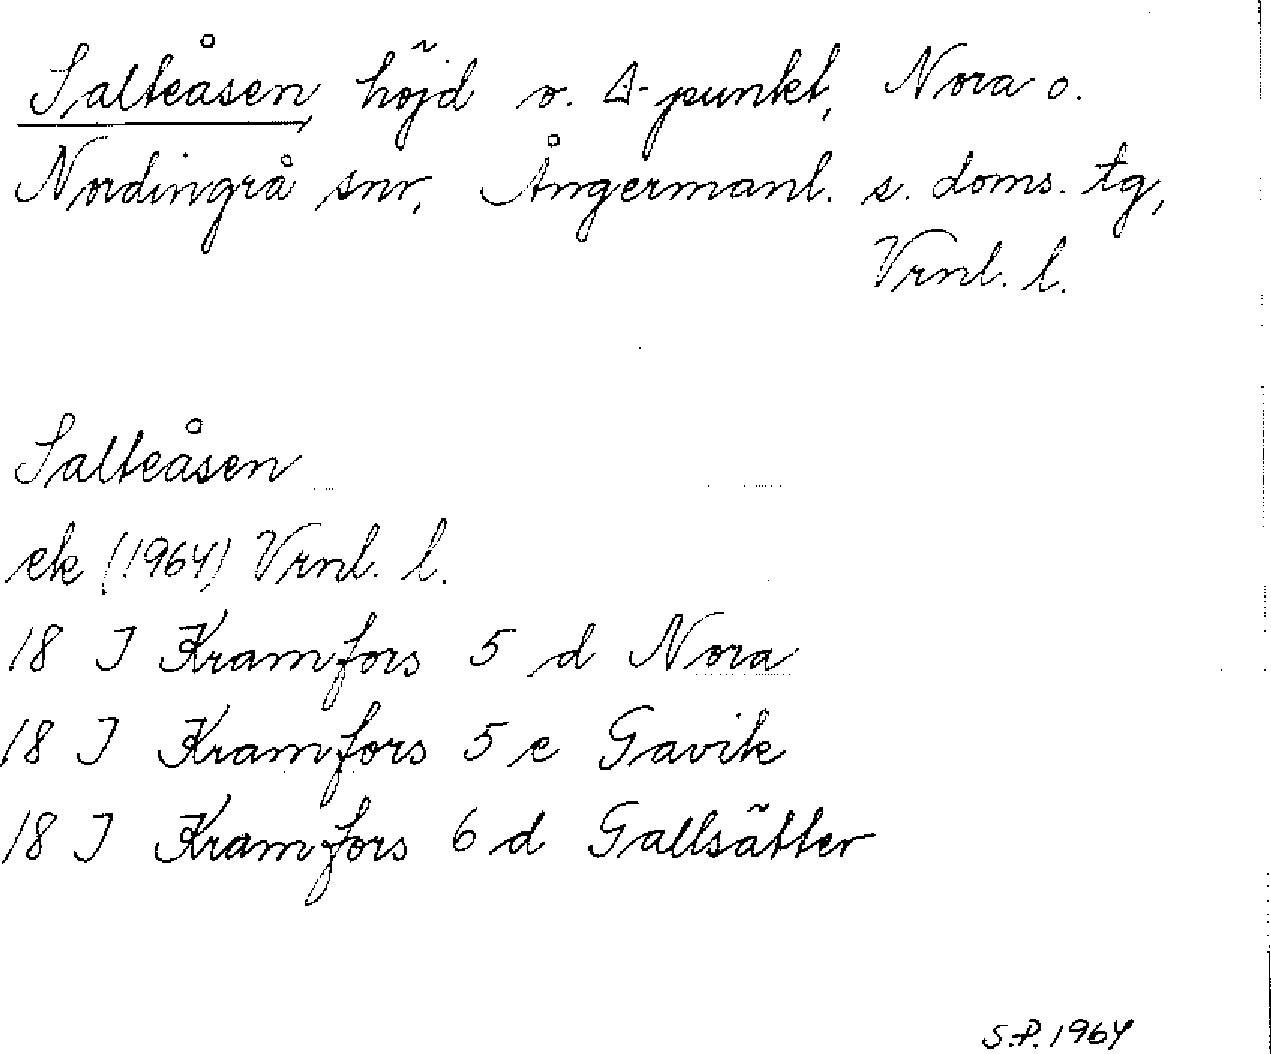 Salteåsen, höjd o. Δ-punkt, Nora o.
Nordingrå snr, Ångermanl. s. doms. tg,
Vrnl. l.
Salteåsen
ek (1964) Vrnl. l.
18 J Kramfors 5 d Nora
18 J Kramfors 5 e Gavik
18 J Kramfors 6 d Gallsätter
S.P. 1964